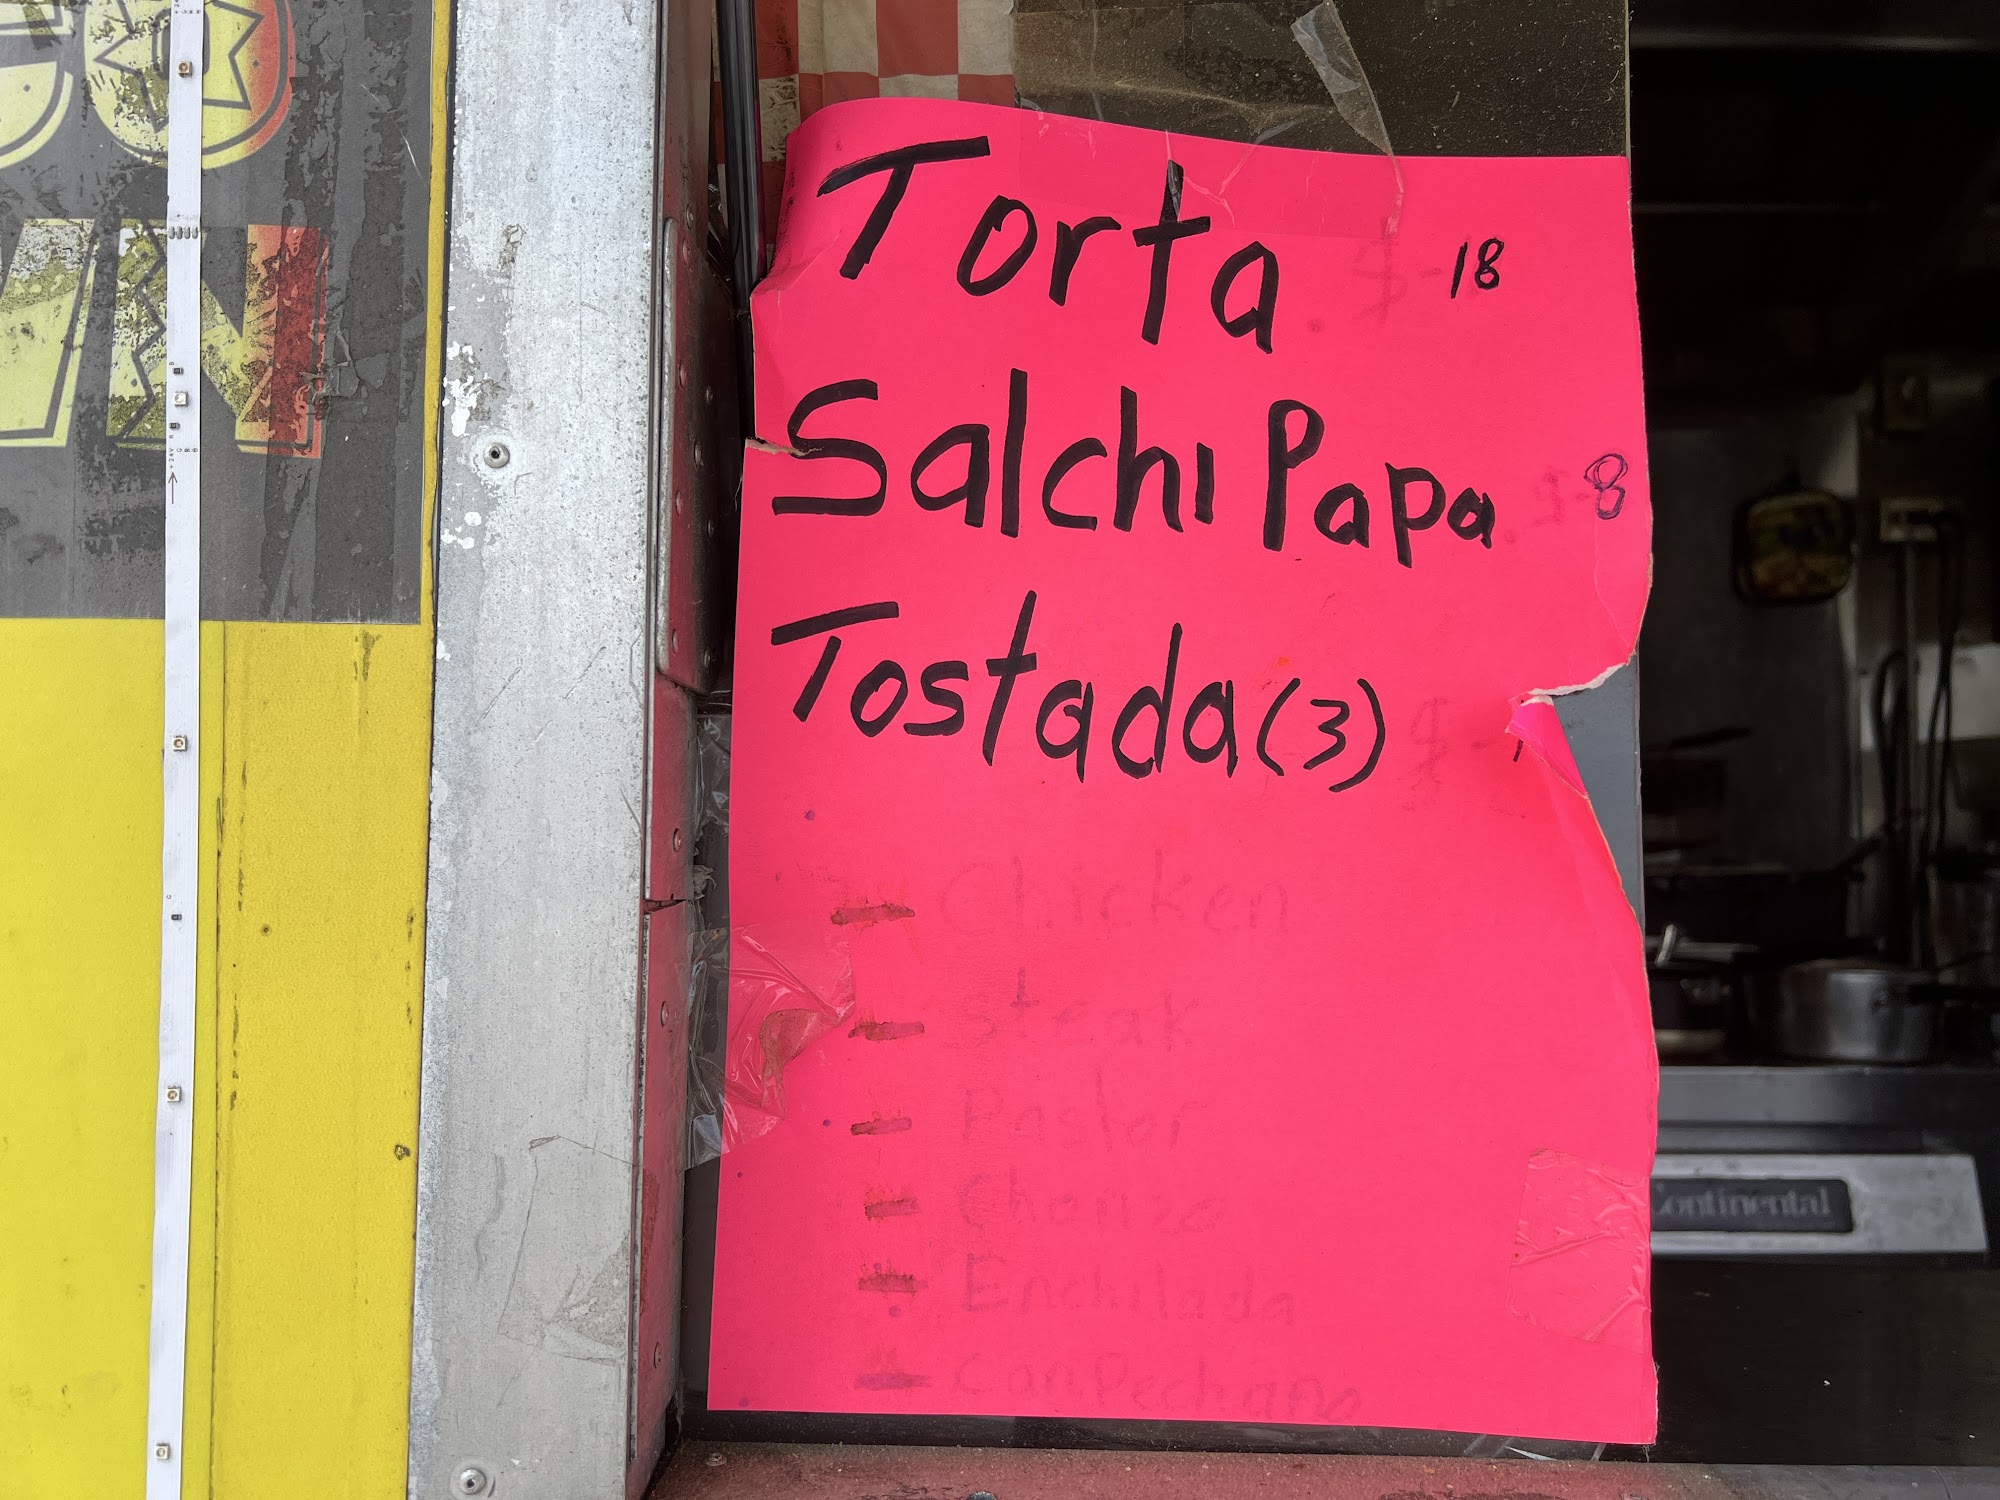 Torta $-18
SalchiPapa $-8
Tostada(3) $-1
Chicken
steak
Pastor
Chorizo
Enchilada
Canpechano
Continental